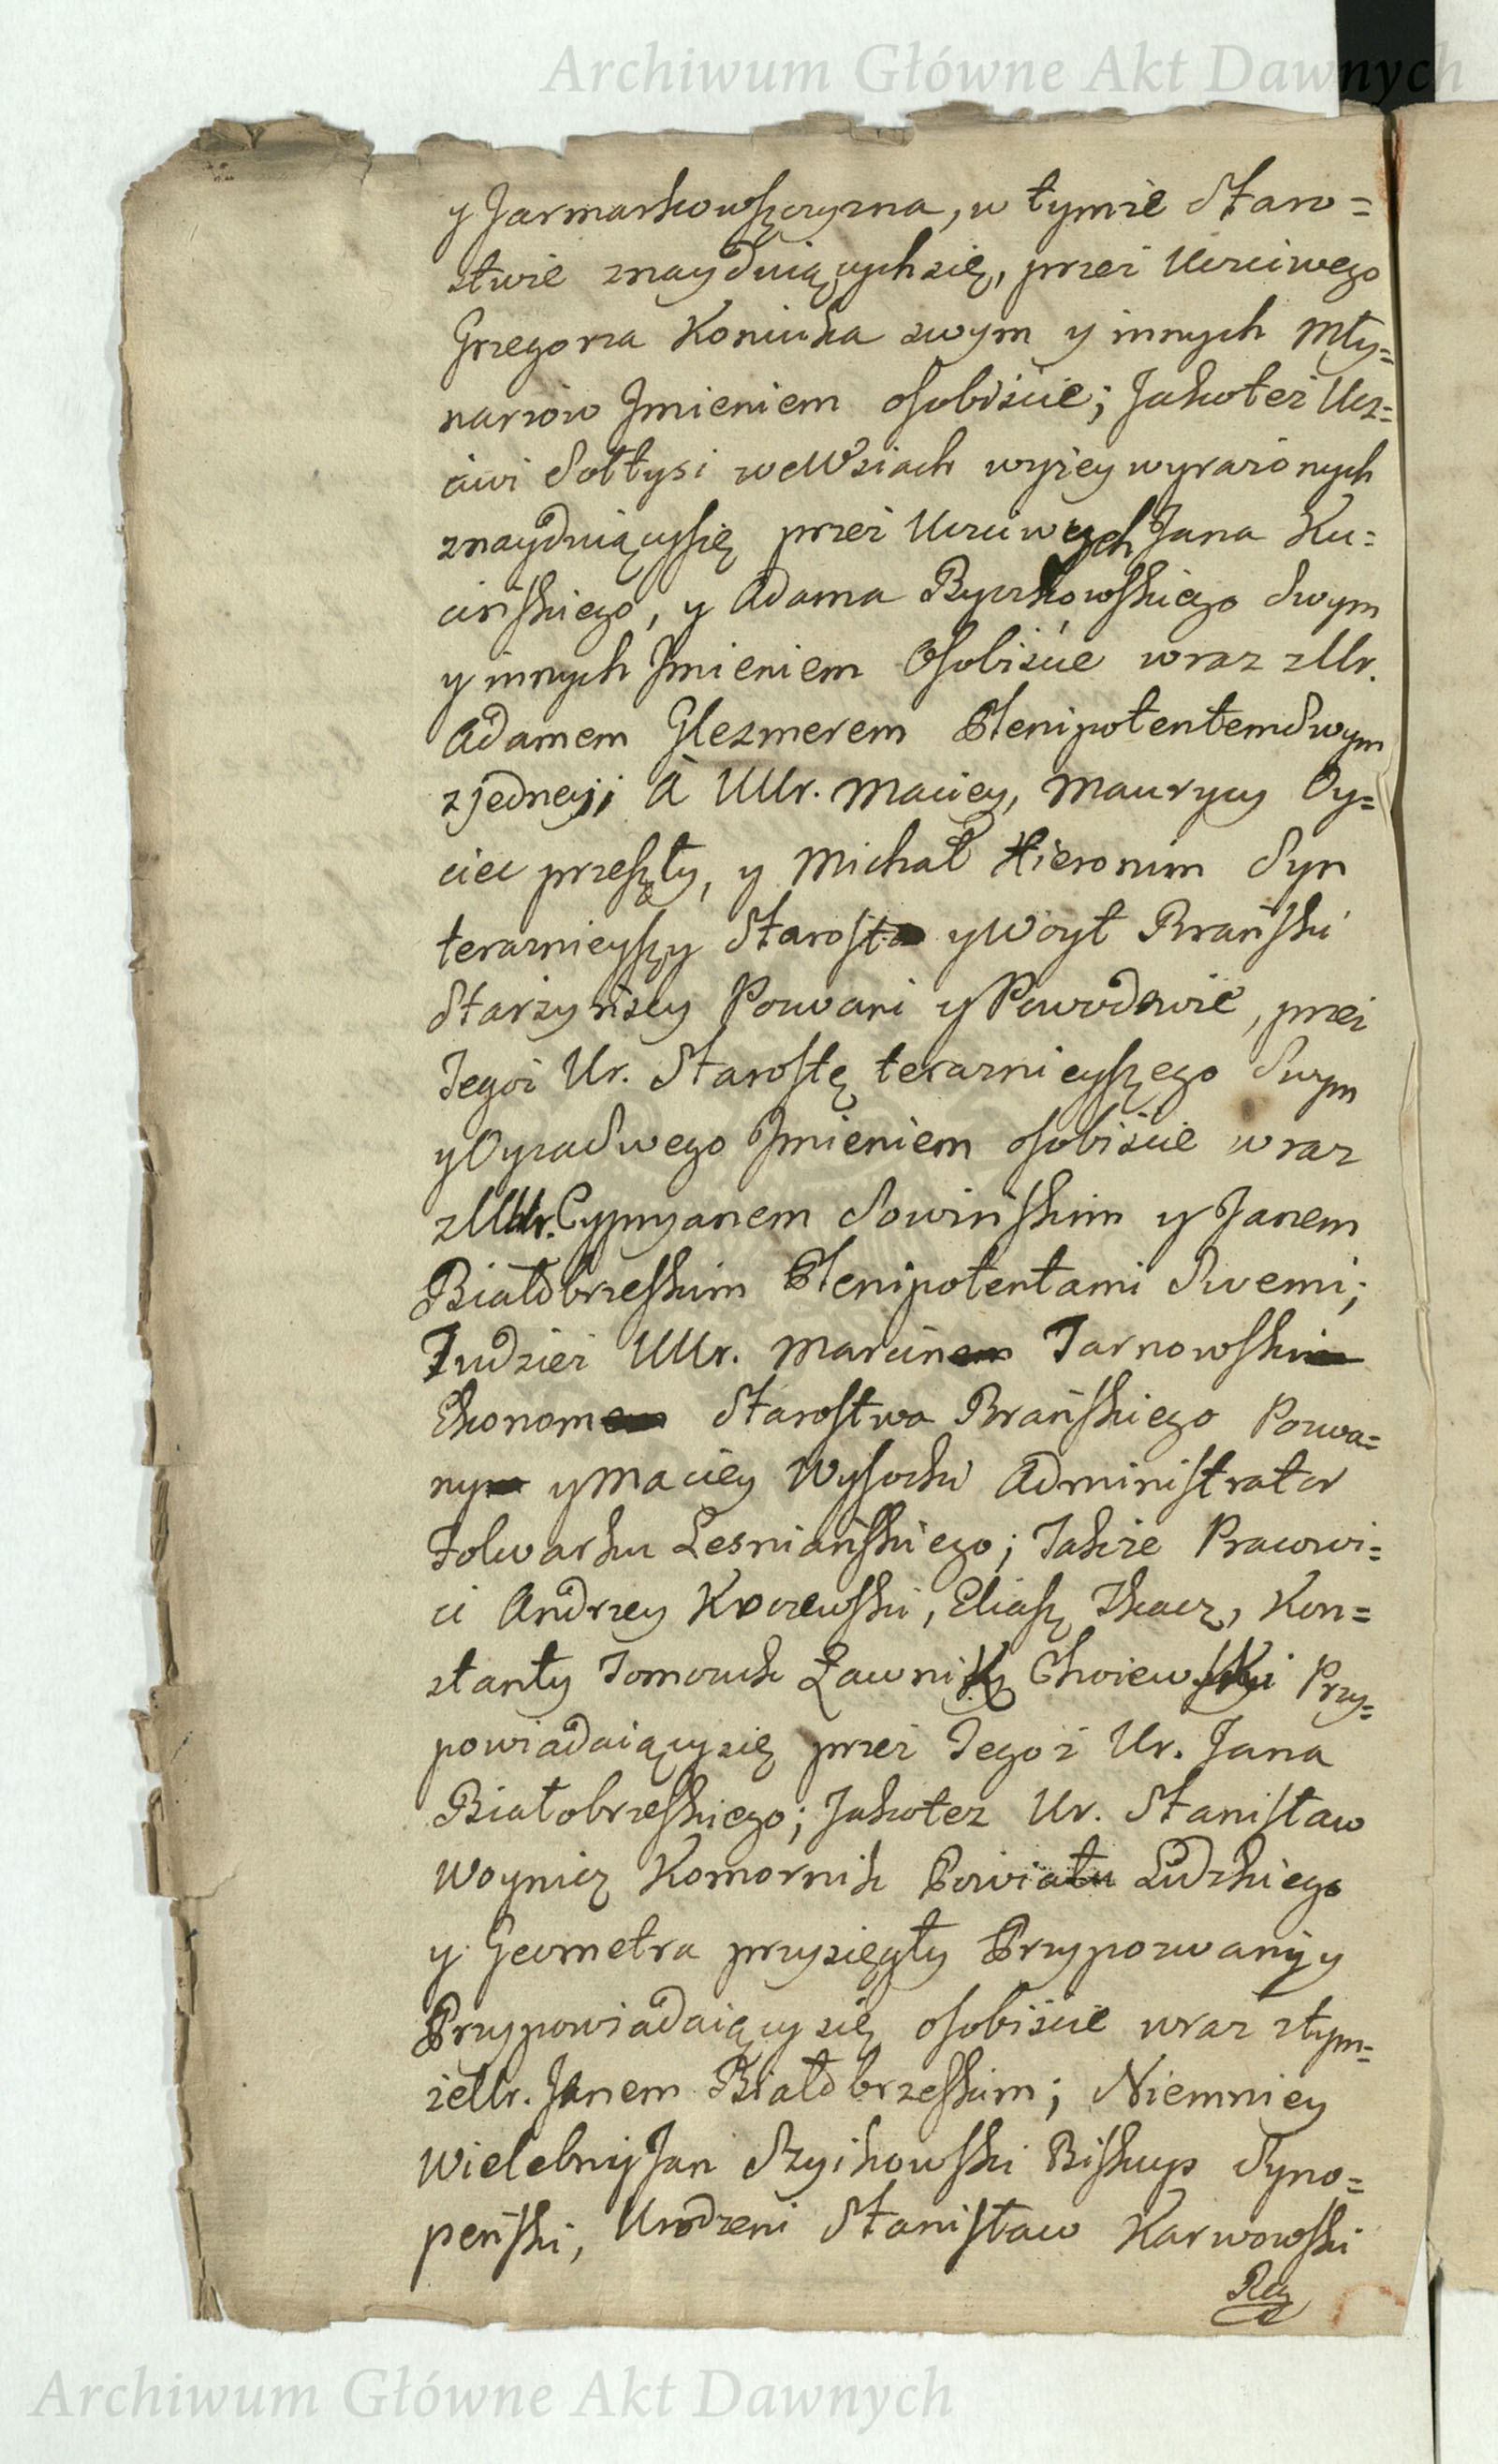 Archiwum Główne Akt Dawnych
y Jarmarkowszczyzna, w tymże Staro=
stwie znayduiących się, przez Uczciwego
Grzegorza Koniuka swym y innych Mły=
narzow Jmieniem osobiście; Jakoteż Ucz=
ciwi Sołtysi we Wsiach wyżey wyrażonych
znayduiący się przez Uczciwych Jana Ku=
cińskiego, y Adama Byczkowskiego Swym
y innych Jmieniem Osobiście wraz z Ur.
Adamem Glezmerem Plenipotentem Swym
z jedney; A UUr. Maciey, Maurycy Oy=
ciec przeszły, y Michał Hieronim Syn
teraznieyszy Starosta y Woyt Brański
Starzyńscy Pozwani y Powodowie, przez
Tegoż Ur. Starostę teraznieyszego Swym
y Oyca Swego Jmieniem osobiście wraz
z UUr. Cypryanem Sowińskim y Janem
Białobrzeskim Plenipotentami Swemi;
Tudzież UUr. Marcin Tarnowski
Ekonom Starostwa Brańskiego Pozwa=
ny y Maciey Wysocki Administrator
Folwarku Lesniańskiego; Także Pracowi=
ci Andrzey Kroczewski, Eliasz Tkacz, Kon=
stanty Tomczuk Ławnicy Choiewscy Przy=
powiadaiący się przez Tegoż Ur. Jana
Białobrzeskiego; Jakotez Ur. Stanisław
Woynicz Komornik Powiatu Lidzkiego
y Geometra przysięgły Przypozwany y
Przypowiadaiący się osobiście wraz z tym=
że Ur. Janem Białobrzeskim; Niemniey
Wielebny Jan Szyikowski Biskup Syno=
peński, Urodzeni Stanisław Karwowski
Reg
Archiwum Główne Akt Dawnych